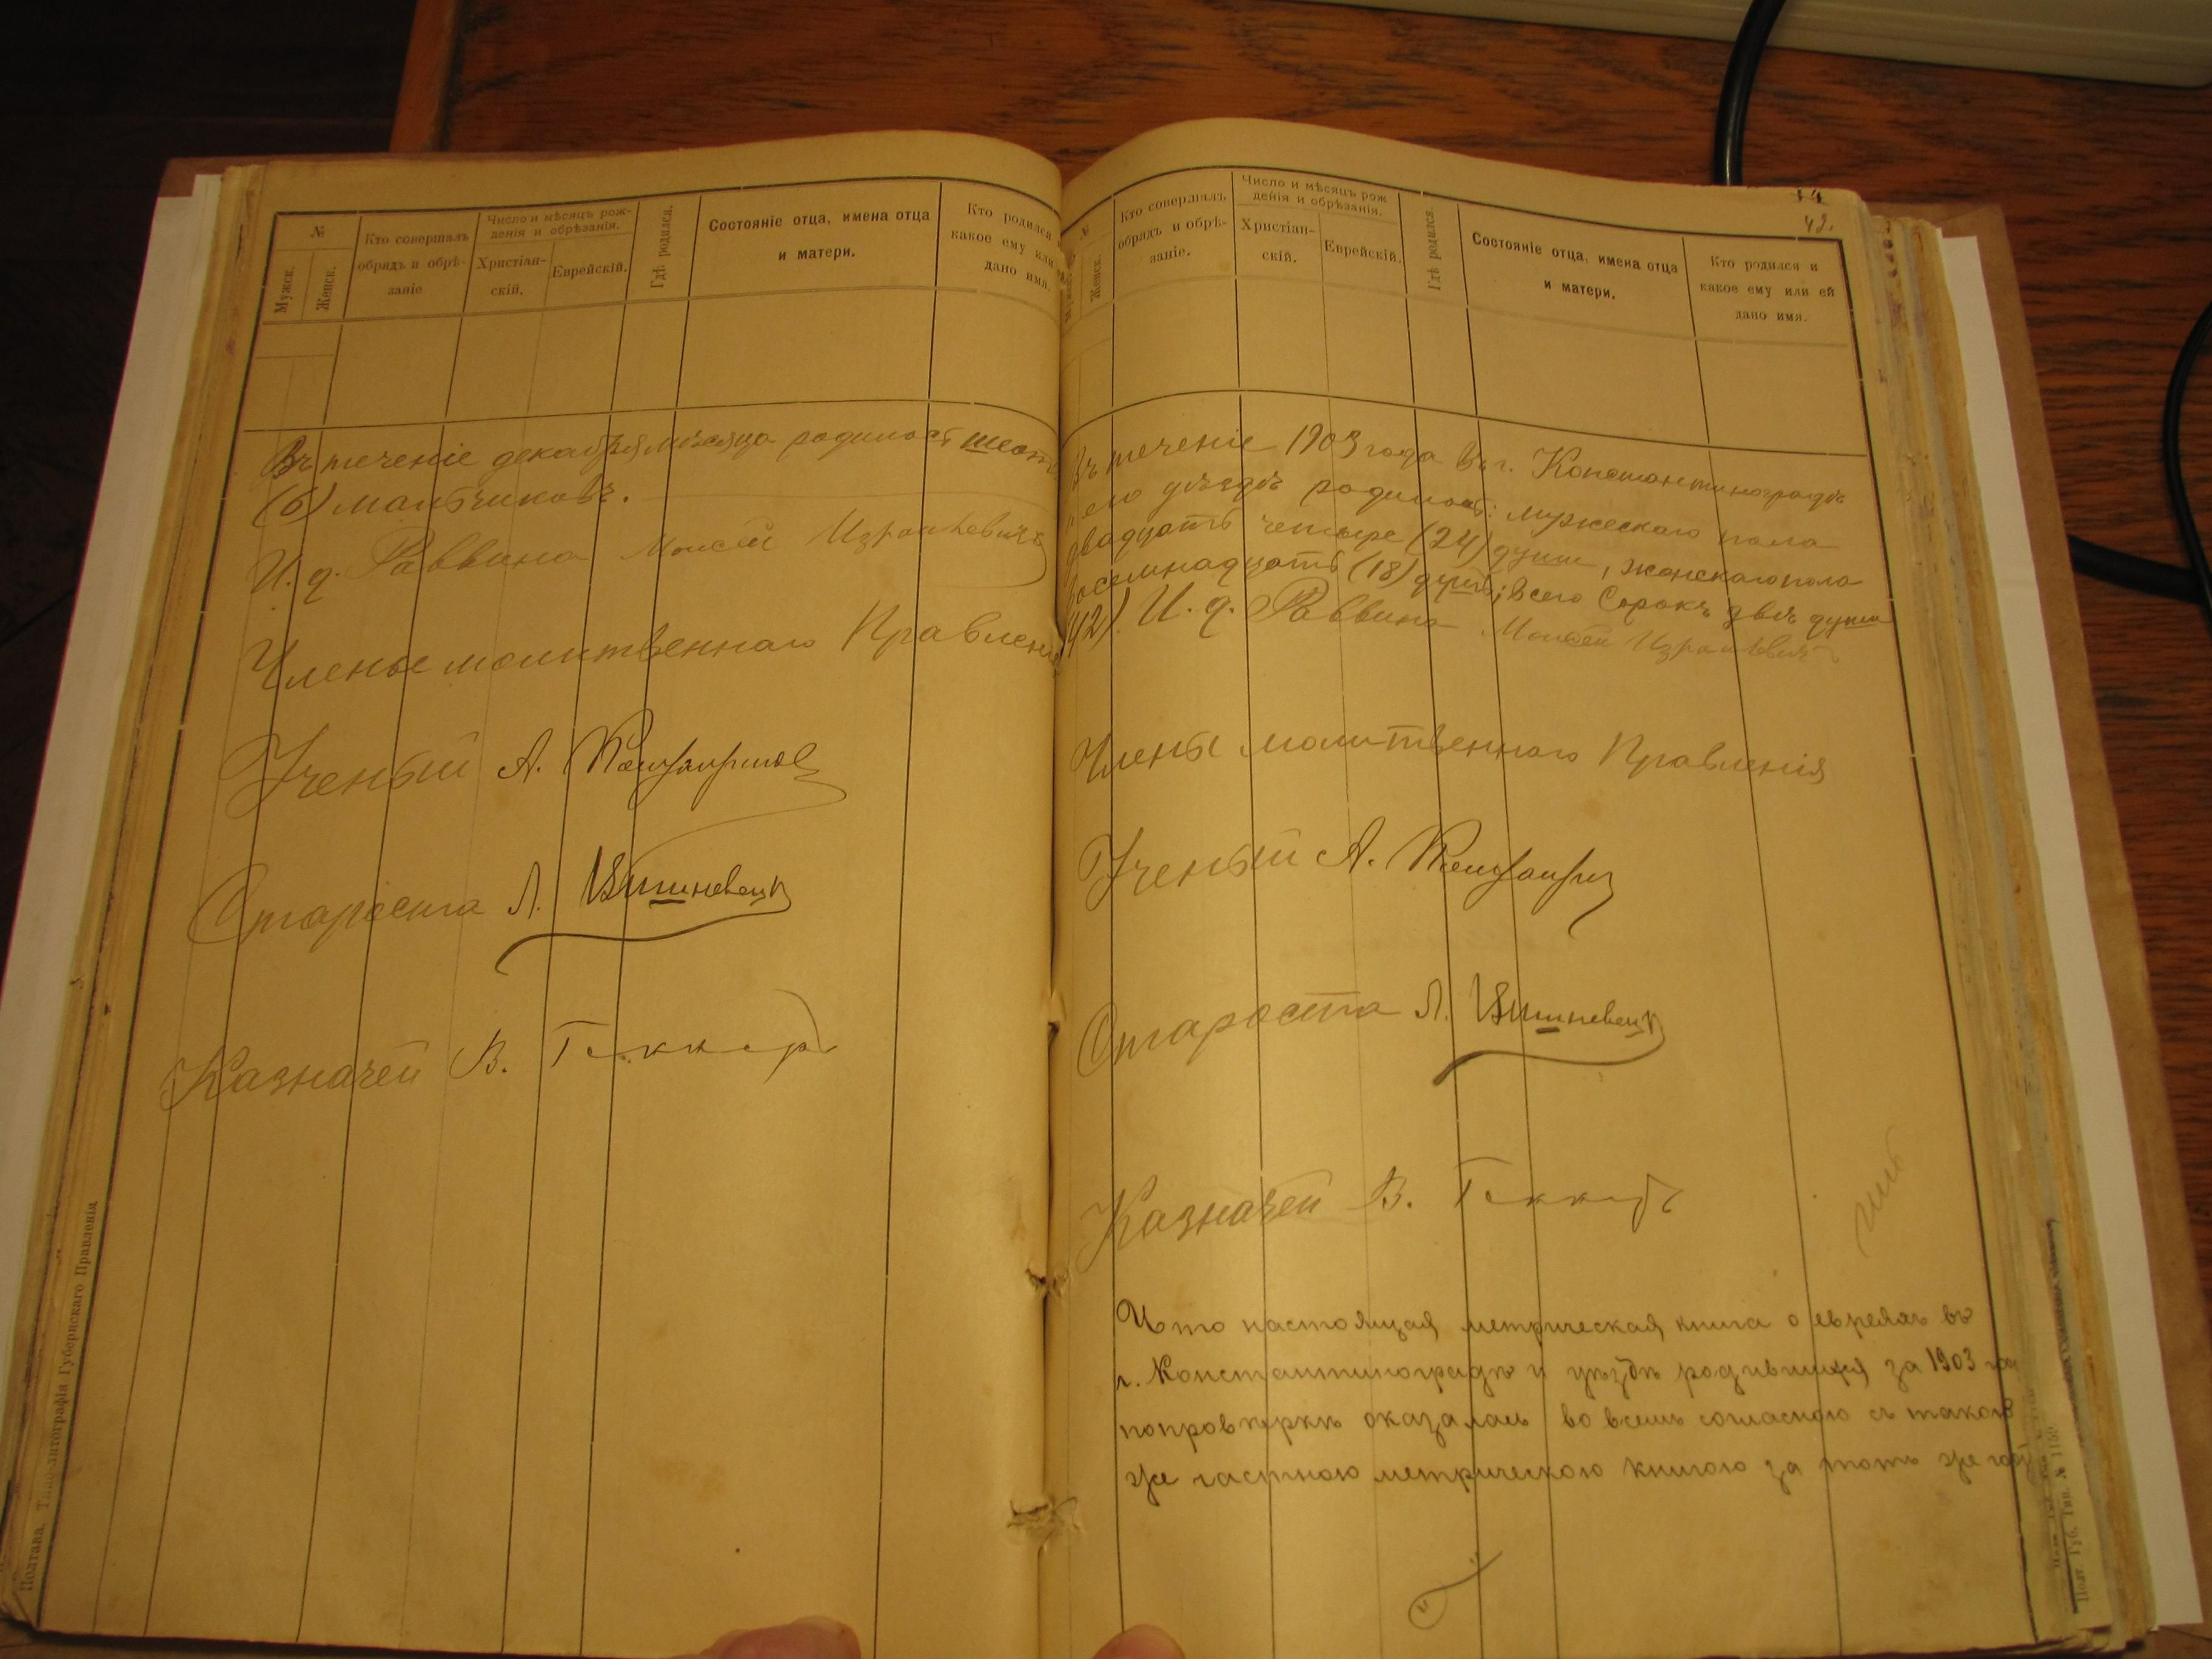 №
Мужск.
Женск.
Кто совершалъ
обрядъ и обрѣ-
заніе
Число и мѣсяцъ рож-
денія и обрѣзанія.
Христіан-
скій.
Еврейскій.
Гдѣ родился.
Состояніе отца, имена отца
и матери.
Кто родился и
какое ему или
дано имя.
Въ теченіе декабря мѣсяца родилось шесть
(6) мальчиковъ.
И. д. Раввина Моисей Израилевичъ
Члены молитвеннаго Правленія
Ученый А.
Староста Л. Вишневецк
Казначей В. Геккер
Полтава. Типо-литографія Губернскаго Правленія
14
42.
№
Женск.
Кто совершалъ
обрядъ и обрѣ-
заніе.
Число и мѣсяцъ рож
денія и обрѣзанія.
Христіан-
скій.
Еврейскій.
Гдѣ родился.
Состояніе отца, имена отца
и матери.
Кто родился и
какое ему или ей
дано имя.
Въ теченіе 1903 года въ г. Константиноградѣ
и его уѣздѣ родилось: мужескаго пола
двадцать четыре (24) души, женскаго пола
восемнадцать (18) душъ; всего Сорокъ двѣ души
(42). И. д. Раввина Моисей Израилевичъ
Члены молитвеннаго Правленія
Ученый А.
Староста Л. Вишневецк
Казначей В. Геккер
Что настоящая метрическая книга о евреяхъ въ
г. Константиноградѣ и уѣздѣ родившихся за 1903 год
по провѣркѣ оказалась во всемъ согласною съ такою
же частною метрическою книгою за тотъ же год
Полт. Губ. Тип. № 1159